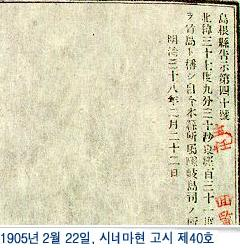 島根縣告示第四十號
北緯三十七度九分三十秒東經百三十一
ヲ竹島ト稱シ自今本縣所屬隱岐島司ノ
明治三十八年二月二十二日
1905년 2월 22일, 시네마현 고시 제40호